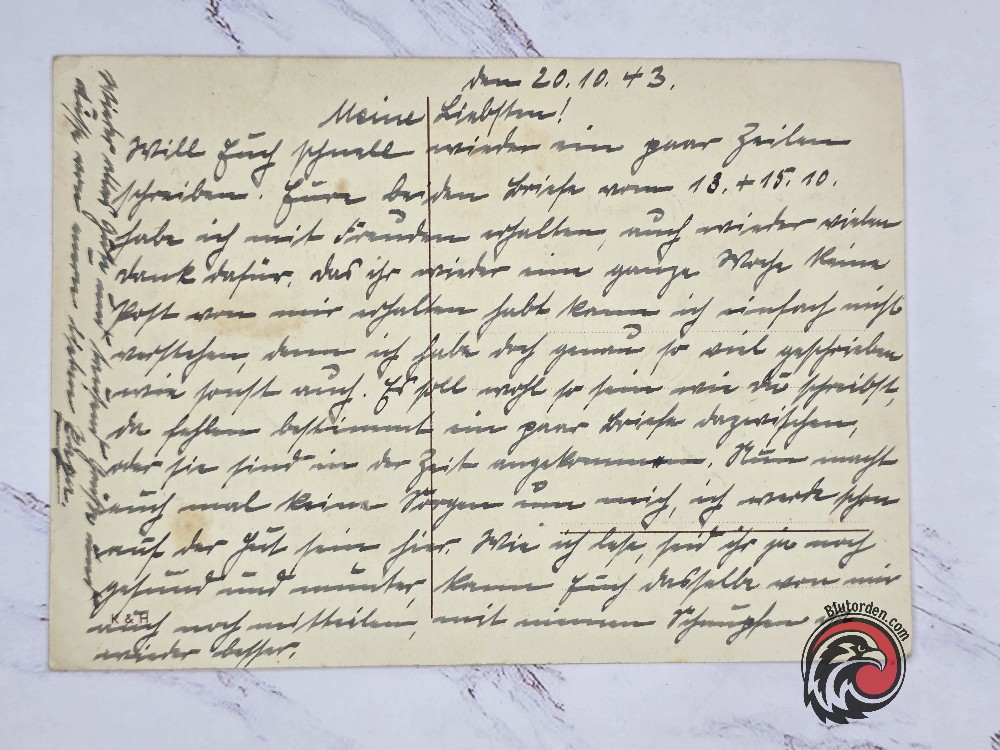 den 20.10.43.
Meine Liebsten!
Will Euch schnell wieder ein paar Zeilen
schreiben. Eure beiden Briefe vom 13.+15.10.
habe ich mit Freuden erhalten, auch wieder vielen
dank dafür. Das ihr wieder eine ganze Woche keine
Post von mir erhalten habt kann ich einfach nicht
verstehen, denn ich habe doch genau so viel geschrieben
wie sonst auch. Es soll wohl so sein wie du schreibst,
da fehlen bestimmt ein paar Briefe dazwischen,
oder sie sind in der Zeit angekommen. Nun macht
euch mal keine Sorgen um mich, ich werde schon
auf der Hut sein hier. Wie ich lese, seid ihr ja noch
gesund und munter, kann Euch dasselbe von mir
auch noch mitteilen, mit meinem Schnupfen
wieder besser.
Wieder alles Gute und tausend Grüße und
Küsse von eurem lieben
K & H
Blutorden.com